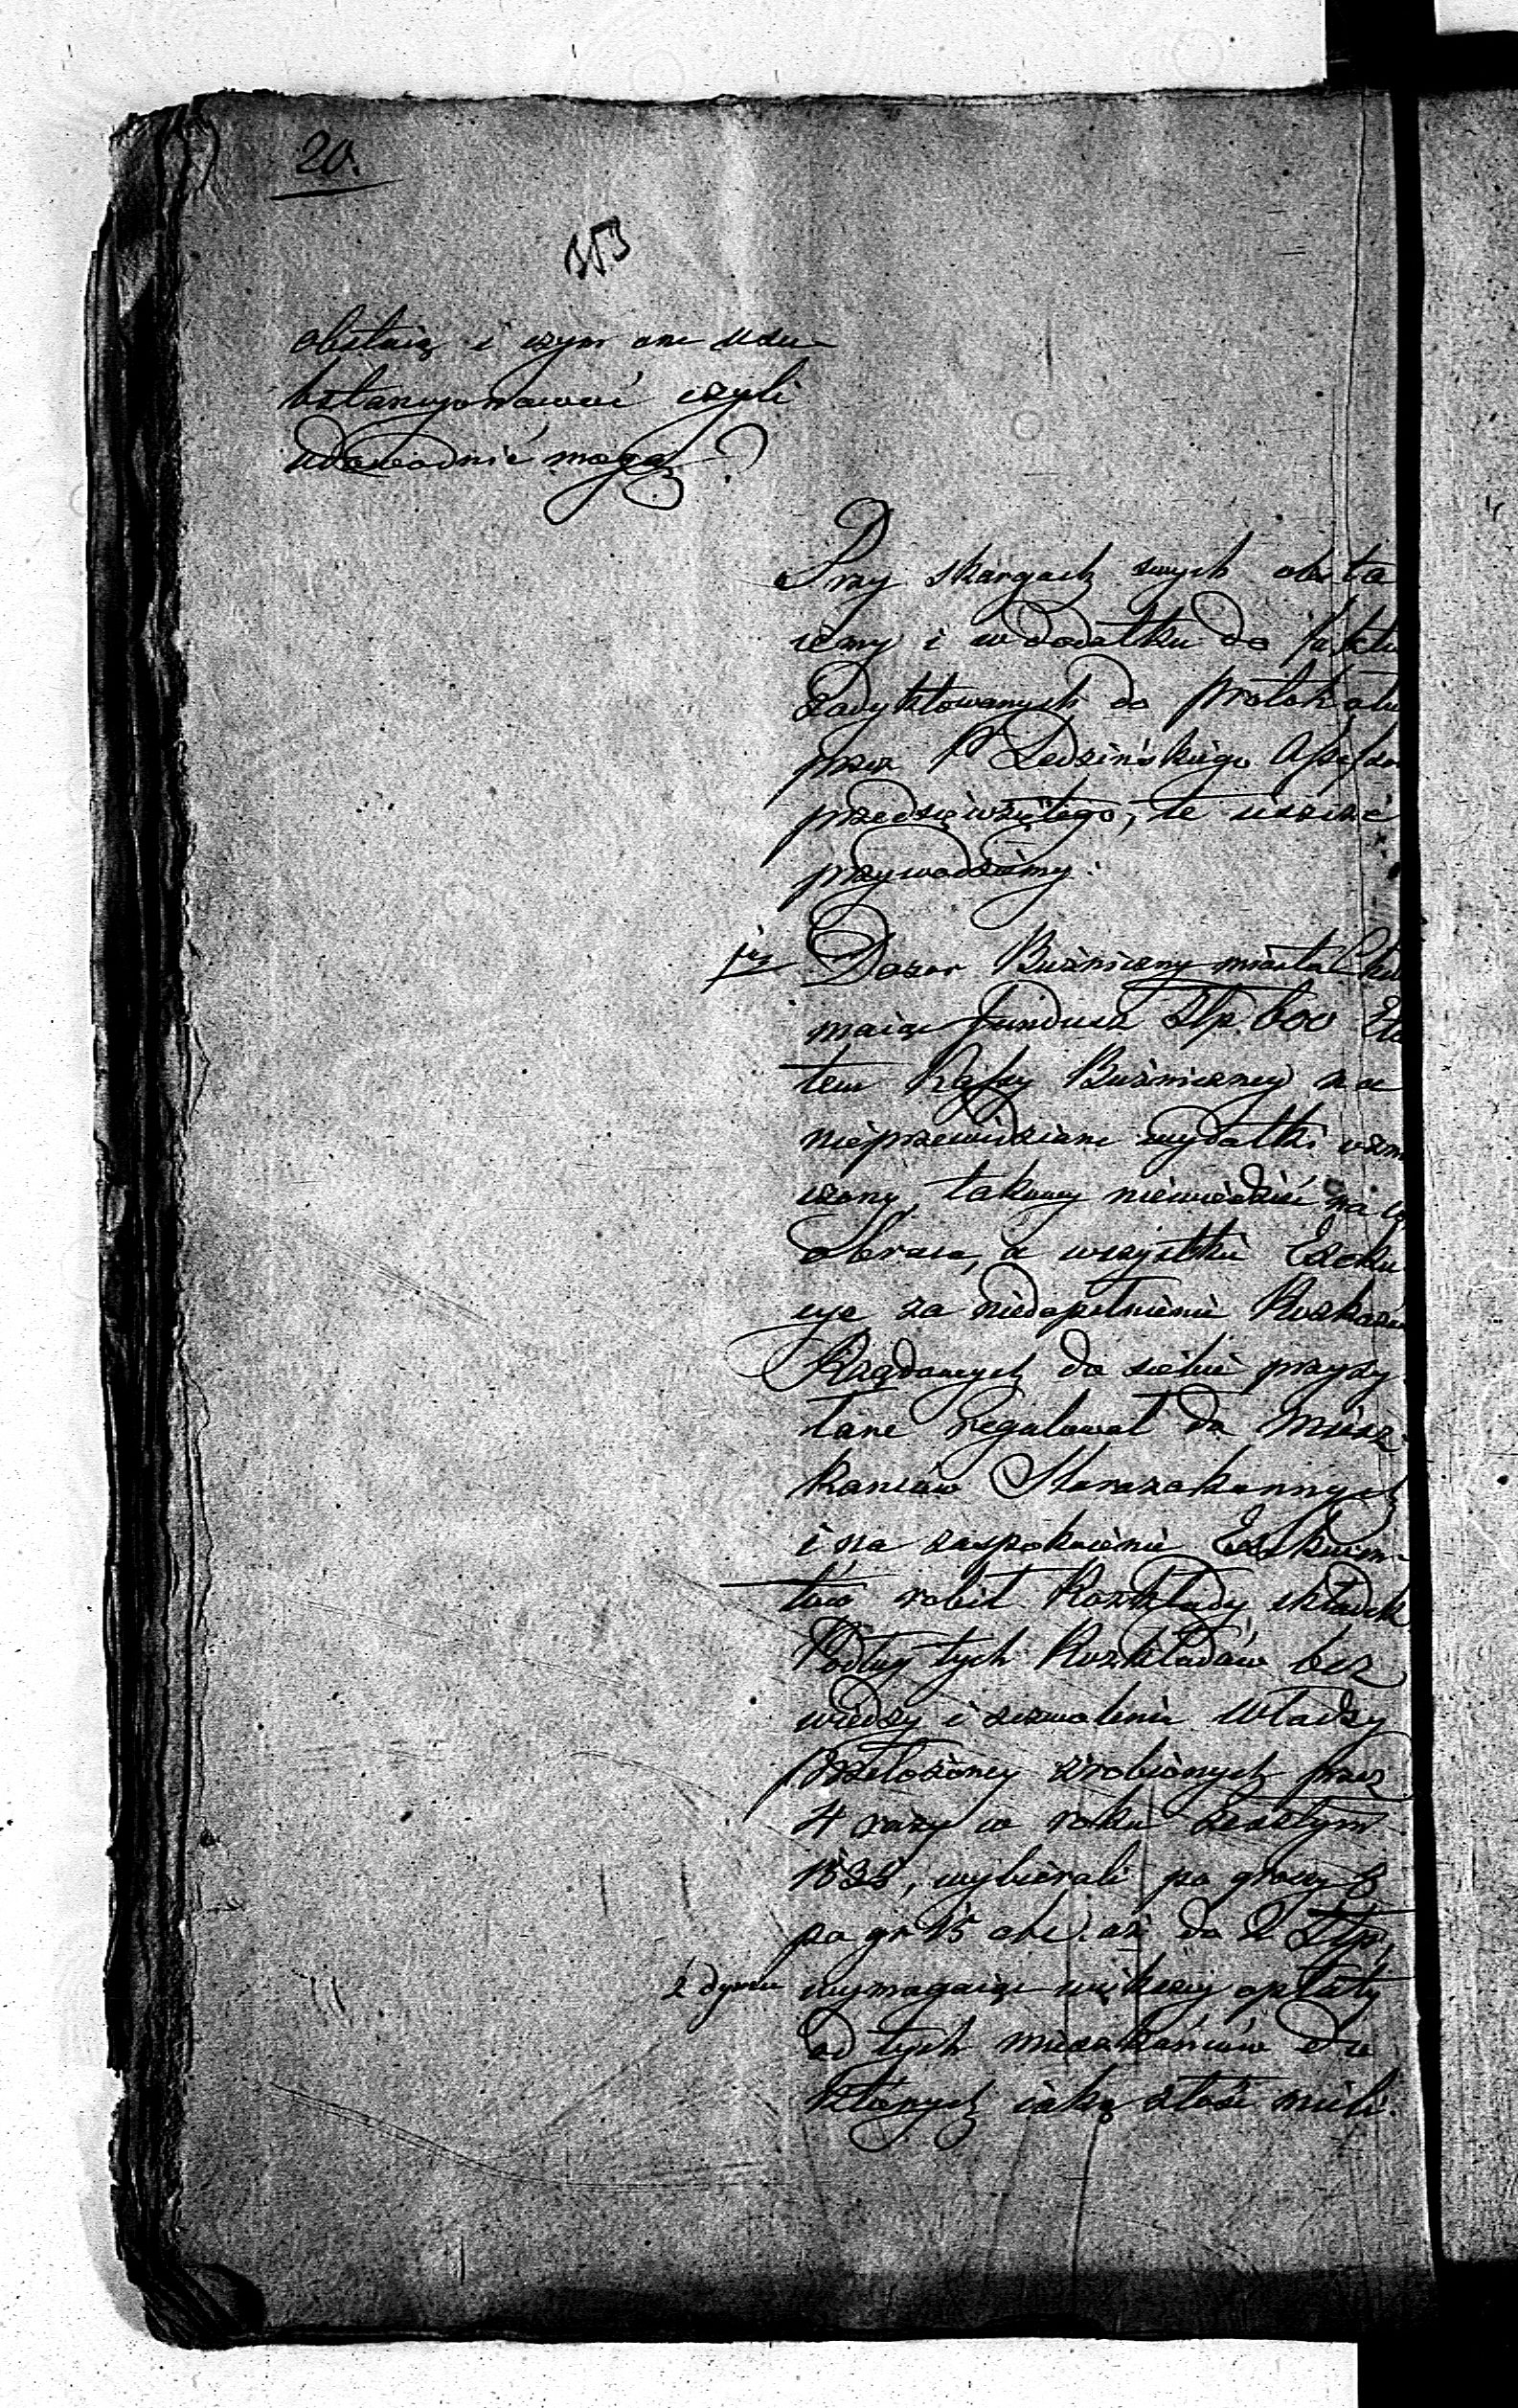 20.
353
obstaią i czym one usu-
bstancyonować czyli
udowodnić mogą?
Przy skargach swych obsta
iemy i w dodatku do faktu
zadyktowanych do protokołu
przez P Ledzińskiego
przedsięwziętego, te ieszcze
przywodziemy.
Dozor Bużniczny miasta
maiąc fundusz Złp. 600 Eta
tem Kassy Bużniczney na
nieprzewidziane wydatki ozna
czony, takowy niewiedzieć na co
obraca, a wszystkie Exeku
cye za niedopełnienie Rozkazów
Rządowych do siebie przysy
łane regulował do miesz-
kańców Starozakonnych
i na zaspokoienie Exekuen-
tów robił Rozkłady składek
Podług tych Rozkładów bez
wiedzy i zezwolenia Władzy
przełożoney zrobionych przez
4 razy w roku zeszłym
1835, wybierali po groszy
po gr 15 aż do 2 Złp.
z dymu wymagaiąc większey opłaty
od tych mieszkańców do
których iaką złość mieli.